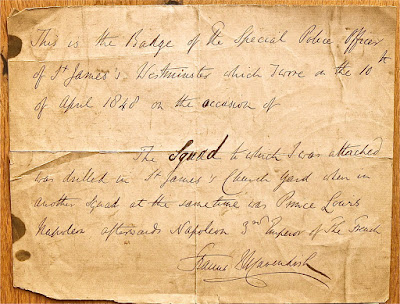 This is the Badge of the Special Police Officer
of St James's, Westminster which I wore on the 10th
of April 1848 on the occasion of
The Squad to which I was attached
was drilled in St James's Church Yard when in
another Squad at the same time was Prince Louis
Napoleon afterwards Napoleon 3rd Emperor of The French
Francis Cavendish